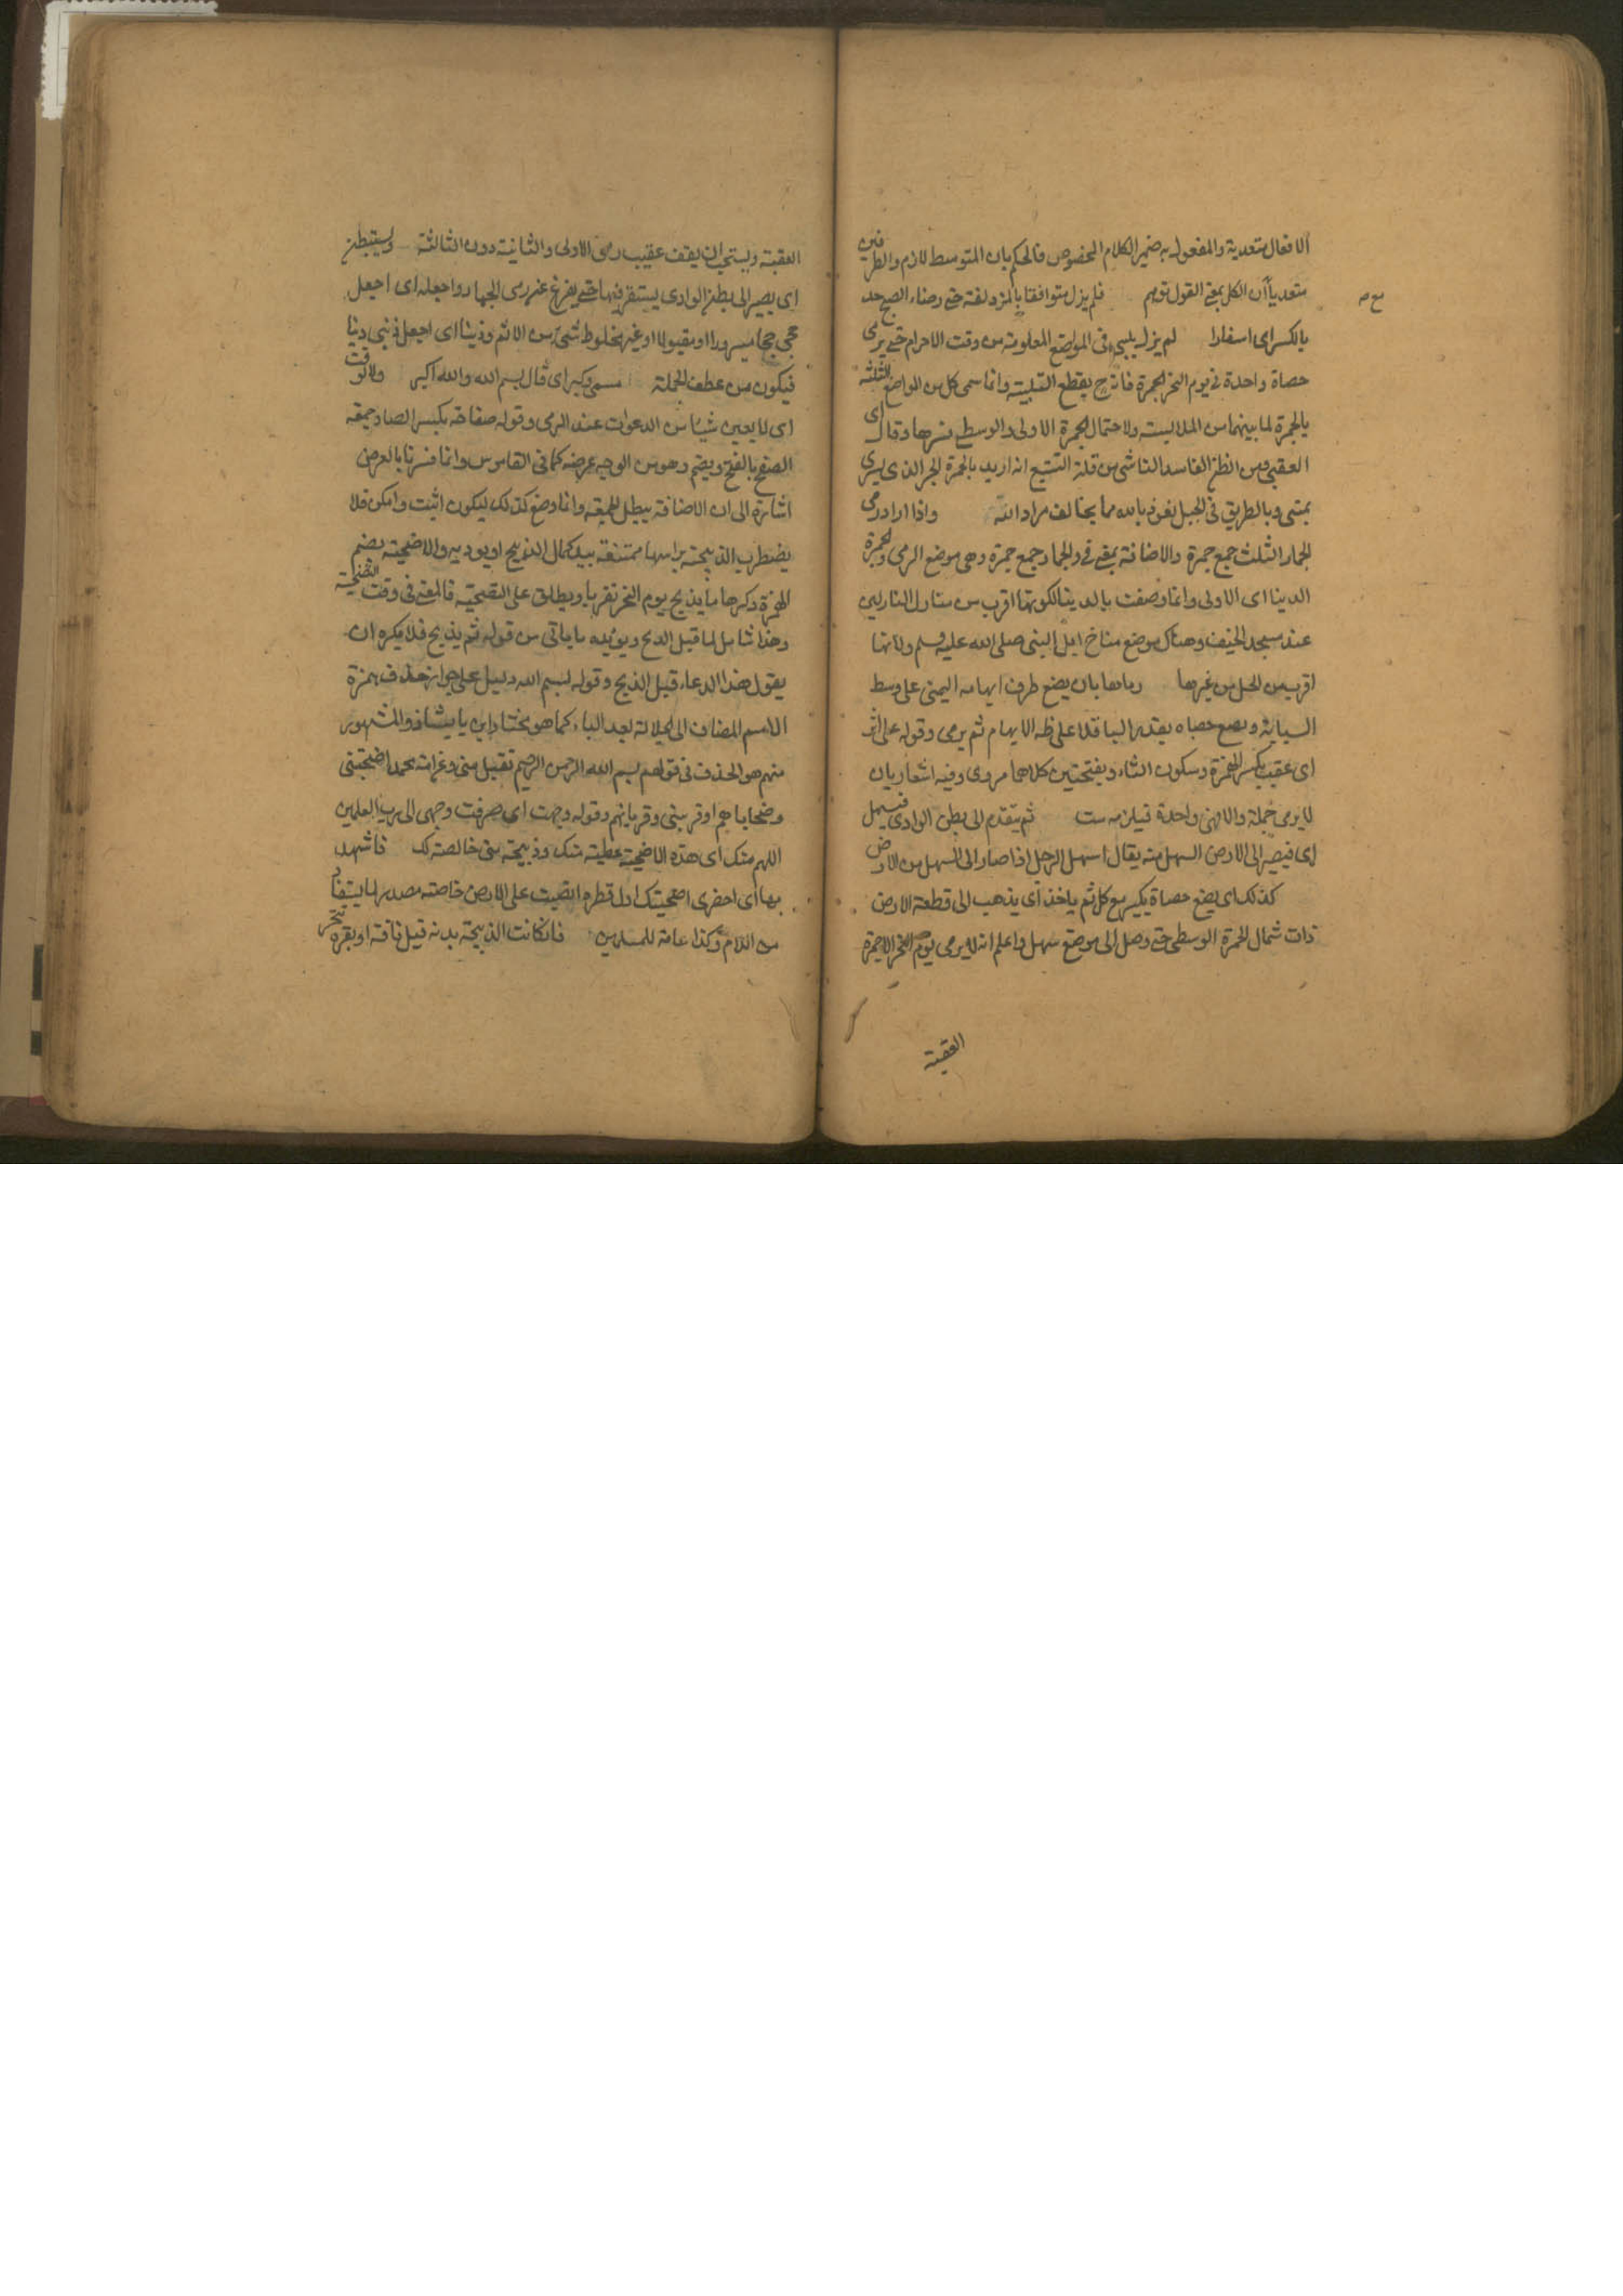 الافعال متعدية والمفعول به ضمير الكلام المخصوص فالحكم بان المتوسط لازم والطرفين
متعديا آن الكل بمعنى القول توهم فلم يزل متوافقا بالمزدلفة حتى وضاء الصبح جد
بالكسر اى اسفارا لم يزل يلبي فى المواضع المعلومة من وقت الاحرام حتى يرمى
حصاة واحدة فى يوم النحر الجمرة فانه ح يقطع التلبية وانما سمى كل من المواضع الثلثة
بالجمرة لما بينهما من الملابسة ولاحتمال الجمرة الاولى والوسطى فسرها وقال اى
العقبى ومن الظن الفاسد الناشى من قلة التتبع انه اريد بالجمرة الحجر الذى يرى
بمنى وبالطريق فى الجبل نعوذ بالله مما يخالف مراد الله واذا اراد رمى
الجمار الثلث جمع جمرة والاضافة بمعنى فى والجمار جمع جمرة وهى موضع الرمى والجمرة
الدينا اى الاولى وانما وصفت بالدينا لكونها اقرب من منازل النازلين
عند مسجد الخيف وهناك موضع مناخ ابل النبى صلى الله عليه وسلم ولانها
اقرب من الحل من غيرها رماها بان يضع طرف ابهامه اليمنى على وسط
السبابة ويضع حصاه بقدر الباقلا على ظهر الابهام ثم يرمى وقوله على اثر
اى عقب بكسر الهمزة وسكون الثاء وبفتحتين كلاهما مروى وفيه اشعار بان
لا يرمى جملة والا فهى واحدة فيلزمه ست ثم يتقدم الى بطن الوادى فيسهل
اى فيصير الى الارض السهل منه يقال اسهل الرجل اذا صار الى السهل من الارض
كذلك اى يضع حصاة يكبر مع كل ثم ياخذ اى يذهب الى قطعة الارض
ذات شمال الجمرة الوسطى حتى وصل الى موضع سهل واعلم انه لا يرمى يوم النحر الا جمرة
العقبة
العقبة ويستحب ان يقف عقيب رمى الاولى والثانية دون الثالثة ويستبطن
اى يصير الى بطن الوادى يستقر فيها حتى يفرغ عن رمى الجمار واجعله اى اجعل
حجى حجا مبرورا او مقبولا او غير مخلوط شئ من الاثم وذنبا اى اجعل ذنبى ذنبا
فيكون من عطف الجملة سمى وكبر اى قال بسم الله والله اكبر ولا توقت
اى لا يعين شيئا من الدعوات عند الرمى وقوله صفاحه بكسر الصاد جمعه
الصفح بالفتح ويضم وهو من الوجه عرضه كما فى القاموس وانما فسرنا بالعرض
اشارة الى ان الاضافة يبطل الجمعية وانما وضع كذلك ليكون اثبت وامكن فلا
يضطرب الذبيحة براسها ممتنعة بيد كمال الذبيح او يوديه والاضحية بضم
الهمزة وكرها ما يذبح يوم النحر تقربا ويطلق على التضحية فالمعنى فى وقت التضحية
وهذا شامل لما قبل الذبح ويؤيده ما ياتى من قوله ثم يذبح فلا يكره ان
يقول هذا الدعاء قبل الذبح وقوله لبسم الله دليل على جواز حذف همزة
الاسم المضاف الى الجلالة بعد الباء كما هو مختار ابن بابشاذ والمشهور
منهم هو الحذف فى قولهم بسم الله الرحمن الرحيم تقبل منى وعن امة محمد اضحيتنى
وضحاياهم او قربتى وقربانهم وقوله وجهت اى صرفت وجهى الى رب العلمين
اللهم منك اى هذه الاضحية عطية منك وذبيحة منى خالصة لك فاشهد
بها اى احضرى اضحيتك اول قطرة ابقيت على الارض خاصة مصدر لما يستفاد
من اللام وكذا عامة للمسلمين فان كانت الذبيحة بدنة قيل ناقة او بقرة تنحر